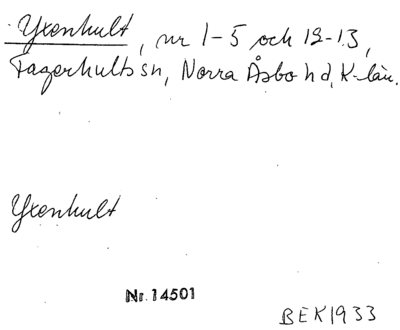 Yxenhult, nr 1-5 och 12-13,
Fagerhults sn, Norra Åsbo hd, K-län.
Yxenhult
Nr. 14501
BEK 1933